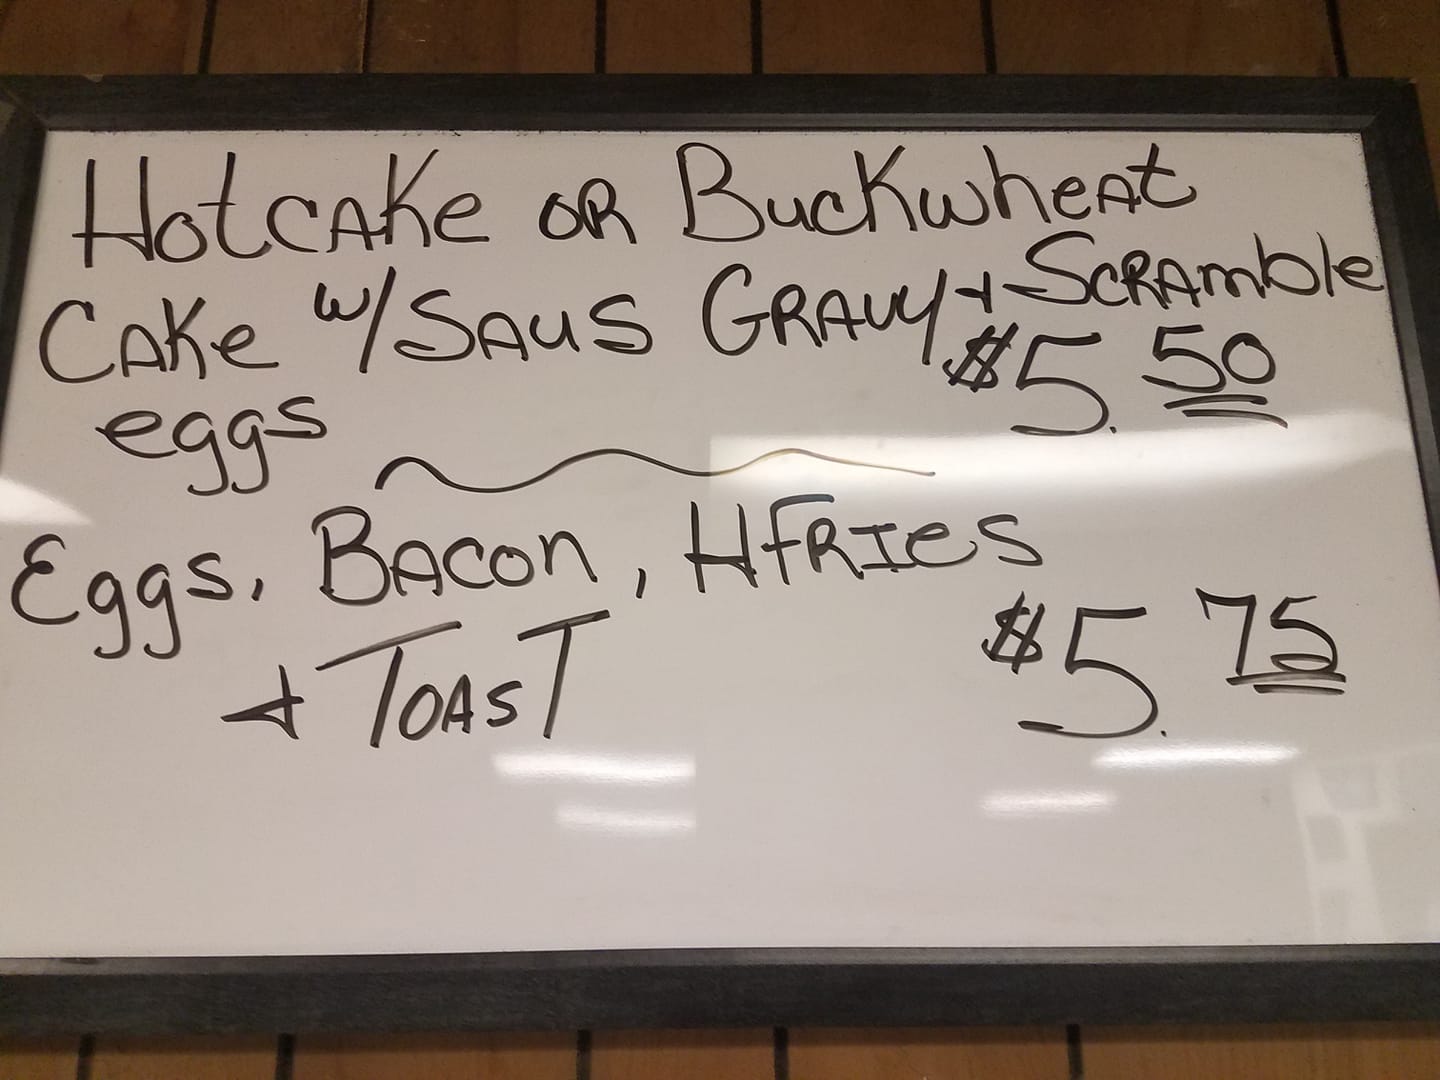 HotcAKe OR BuckwheAt
CAKe w/ SAUS GRAVY + SCRAmble
eggs $5.50
Eggs, BAcon, HFRIes
+ TOAST $5.75